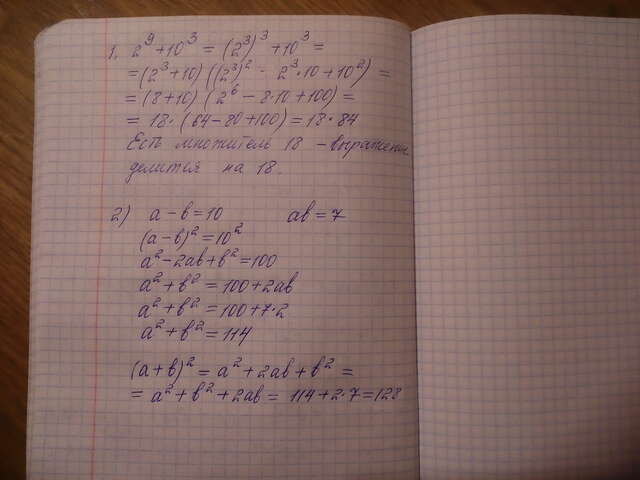 1. 2⁹+10³ = (2³)³+10³=
=(2³+10)((2³)² - 2³·10+10²) =
= (8+10) (2⁶-8·10+100) =
= 18·(64-80+100)=18·84
Есть множитель 18 - выражение
делится на 18.
2) a-в=10 ав=7
(a-в)²=10²
a²-2ав+в²=100
a²+в² = 100+2ав
a²+в² = 100+7·2
a²+в² = 114
(a+в)² = a²+2ав+в² =
= a²+в²+2ав = 114+2·7=128